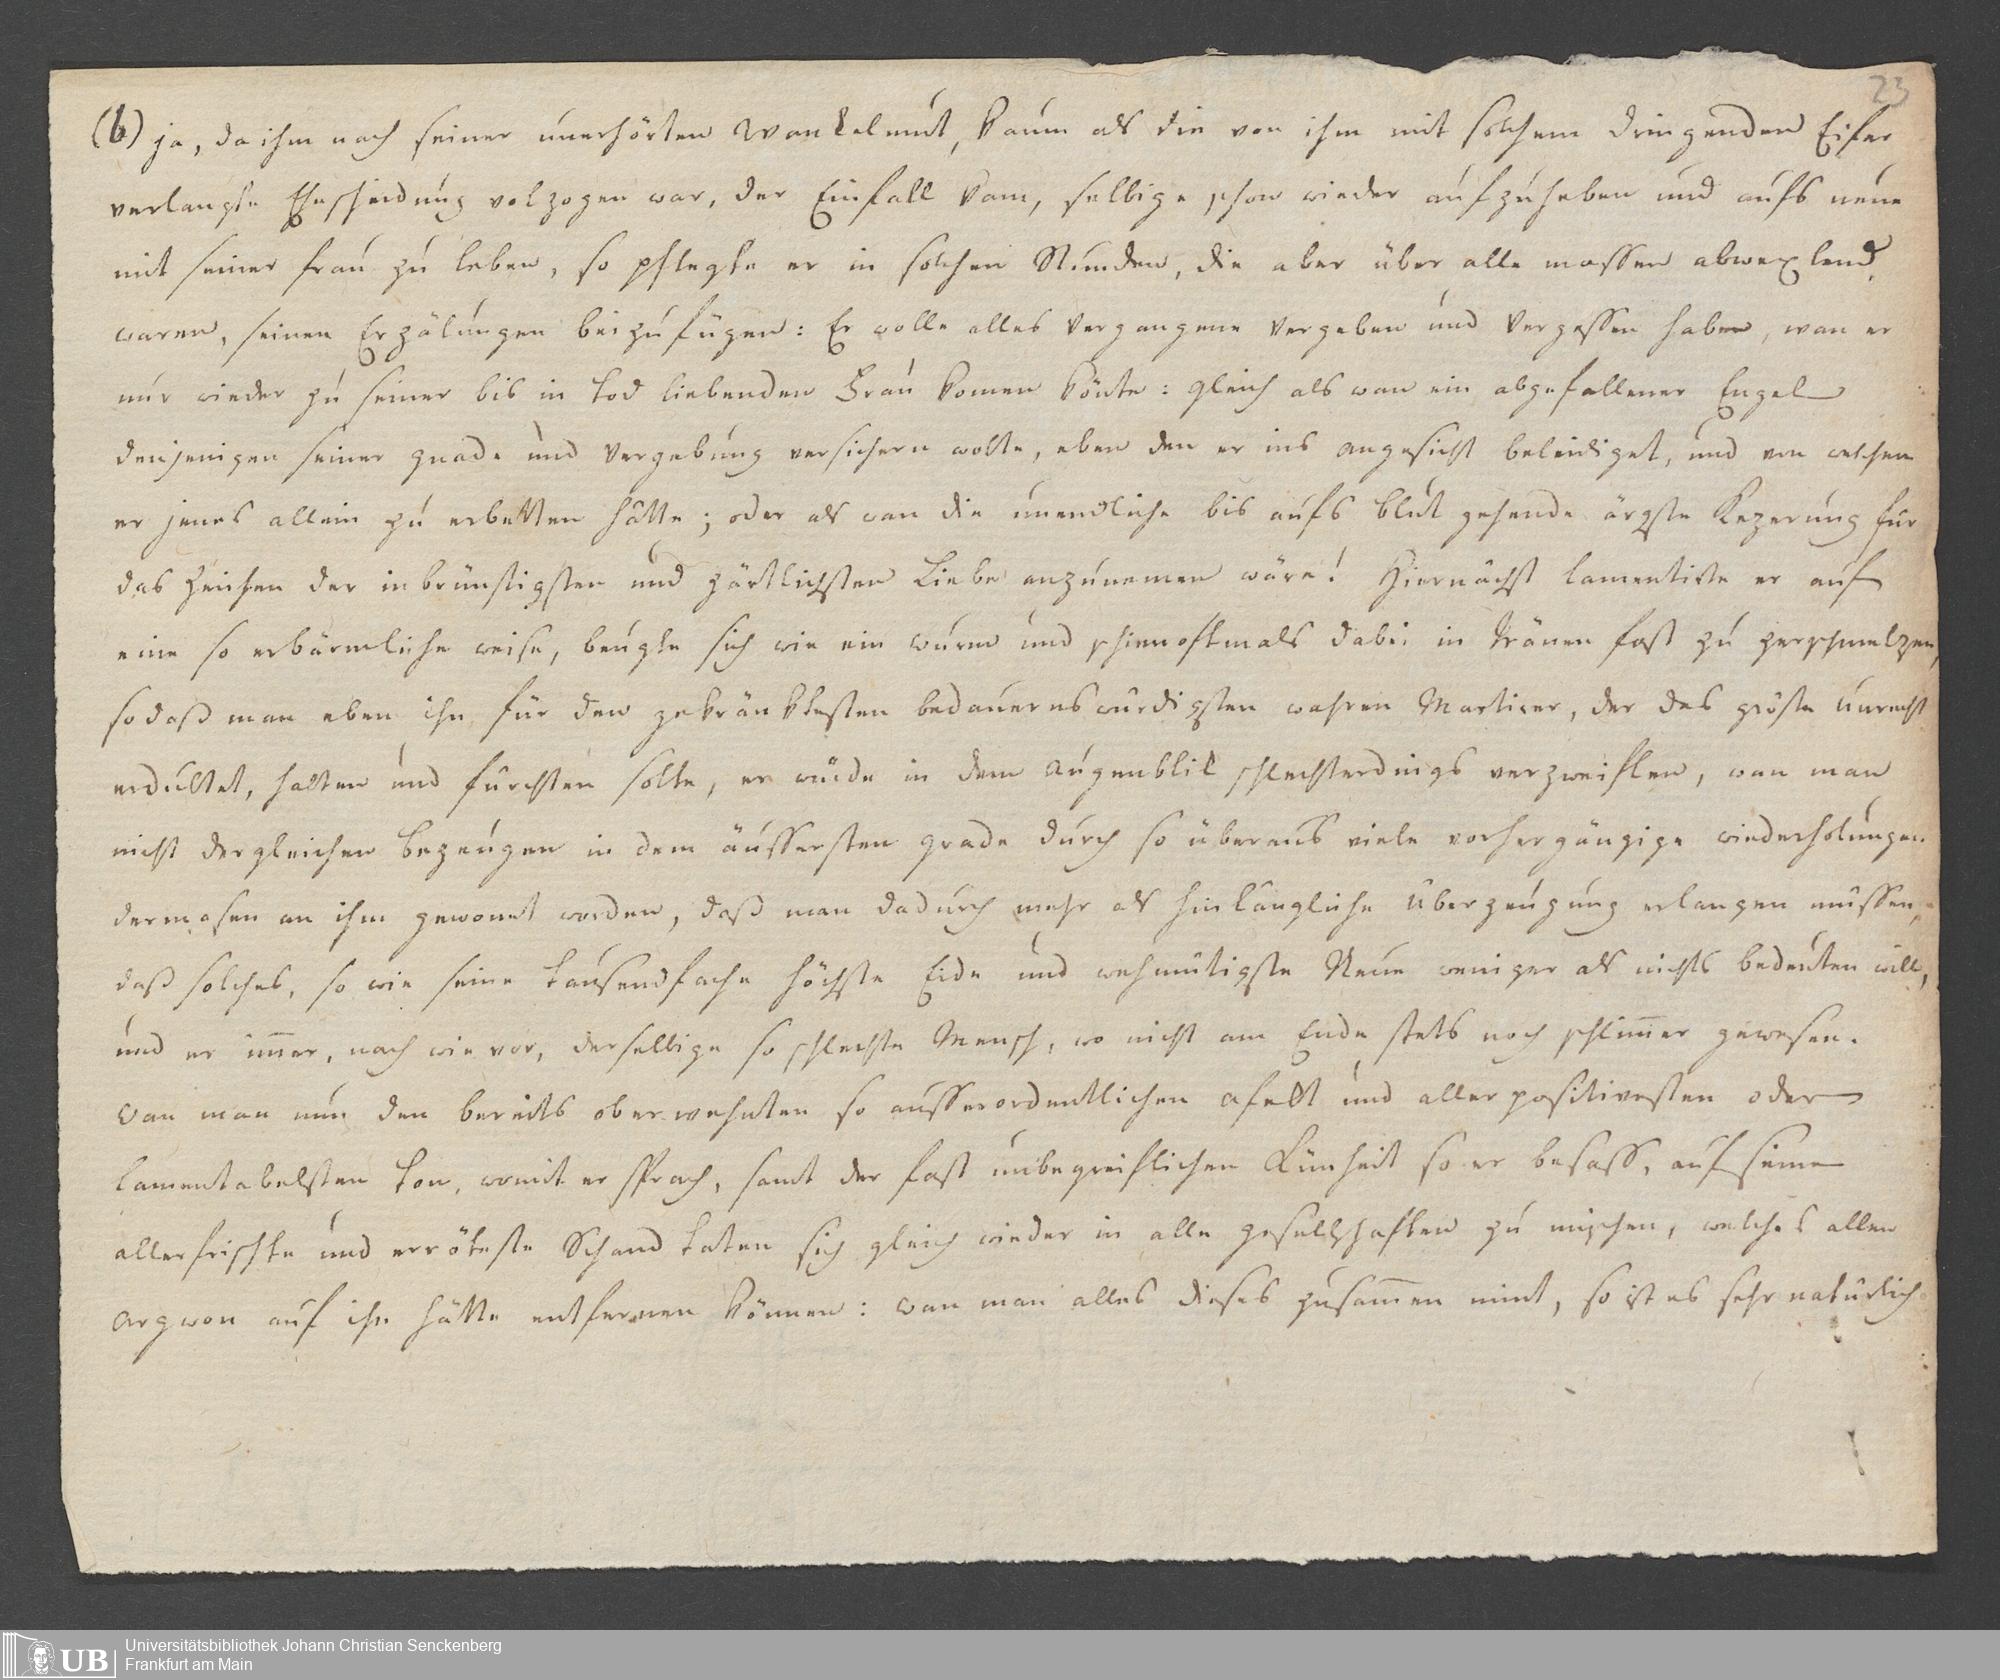 23
(b) ja, da ihm nach seiner unerhörten Wankelmut, kaum als die von ihm mit solchem dringenden Eifer
verlangte Ehescheidung volzogen war, der Einfall kam, selbige schon wieder aufzuheben und aufs neue
mit seiner frau zu leben, so pflegte er in solchen Stunden, die aber über alle massen abwexlend
waren, seinen Erzälungen beizufügen: Er wolle alles vergangene vergeben und vergessen haben, wan er
nur wieder zu seiner bis in tod liebenden Frau komen könte: gleich als wan ein abgefallener Engel
denjenigen seiner gnade und vergebung versichern wolte, eben den er ins angesicht beleidiget, und von welchem
er jenes allein zu erbetten hätte; oder als wan die unendliche bis aufs blut gehende ärgste Kezerung für
das Zeichen der inbrünstigsten und zärtlichsten Liebe anzunemen wäre! Hiernächst lamentirte er auf
eine so erbärmliche weise, beugte sich wie ein wurm und schien oftmals dabei in tränen fast zu zerschmelzen,
so daß man eben ihn für den gekränktesten bedauernswürdigsten wahren Martirer, der das gröste unrecht
erdultet, halten und fürchten solte, er würde in dem augenblik schlechterdings verzweiflen, wan man
nicht dergleichen bezeugen in dem äussersten grade durch so überaus viele vorhergängige wiederholungen
dermasen an ihm gewont worden, daß man dadurch mehr als hinlängliche überzeugung erlangen müssen,
daß solches, so wie seine tausendfache höchste Eide und wehmütigste Reue weniger als nichts bedeuten will,
und er immer, nach wie vor, derselbige so schlechte Mensch, wo nicht am Ende stets noch schlimmer gewesen.
Wan man nun den bereits oberwehnten so ausserordentlichen afekt und aller positivesten oder
lamentabelsten ton, womit er sprach, samt der fast unbegreiflichen Künheit so er besass, auf seine
allerfrischte und erröteste Schandtaten sich gleich wieder in alle gesellschaften zu mischen, welches allen
argwon auf ihn hätte entfernen können: wan man alles dieses zusammen nimt, so ist es sehr natürlich
UB
Universitätsbibliothek Johann Christian Senckenberg
Frankfurt am Main